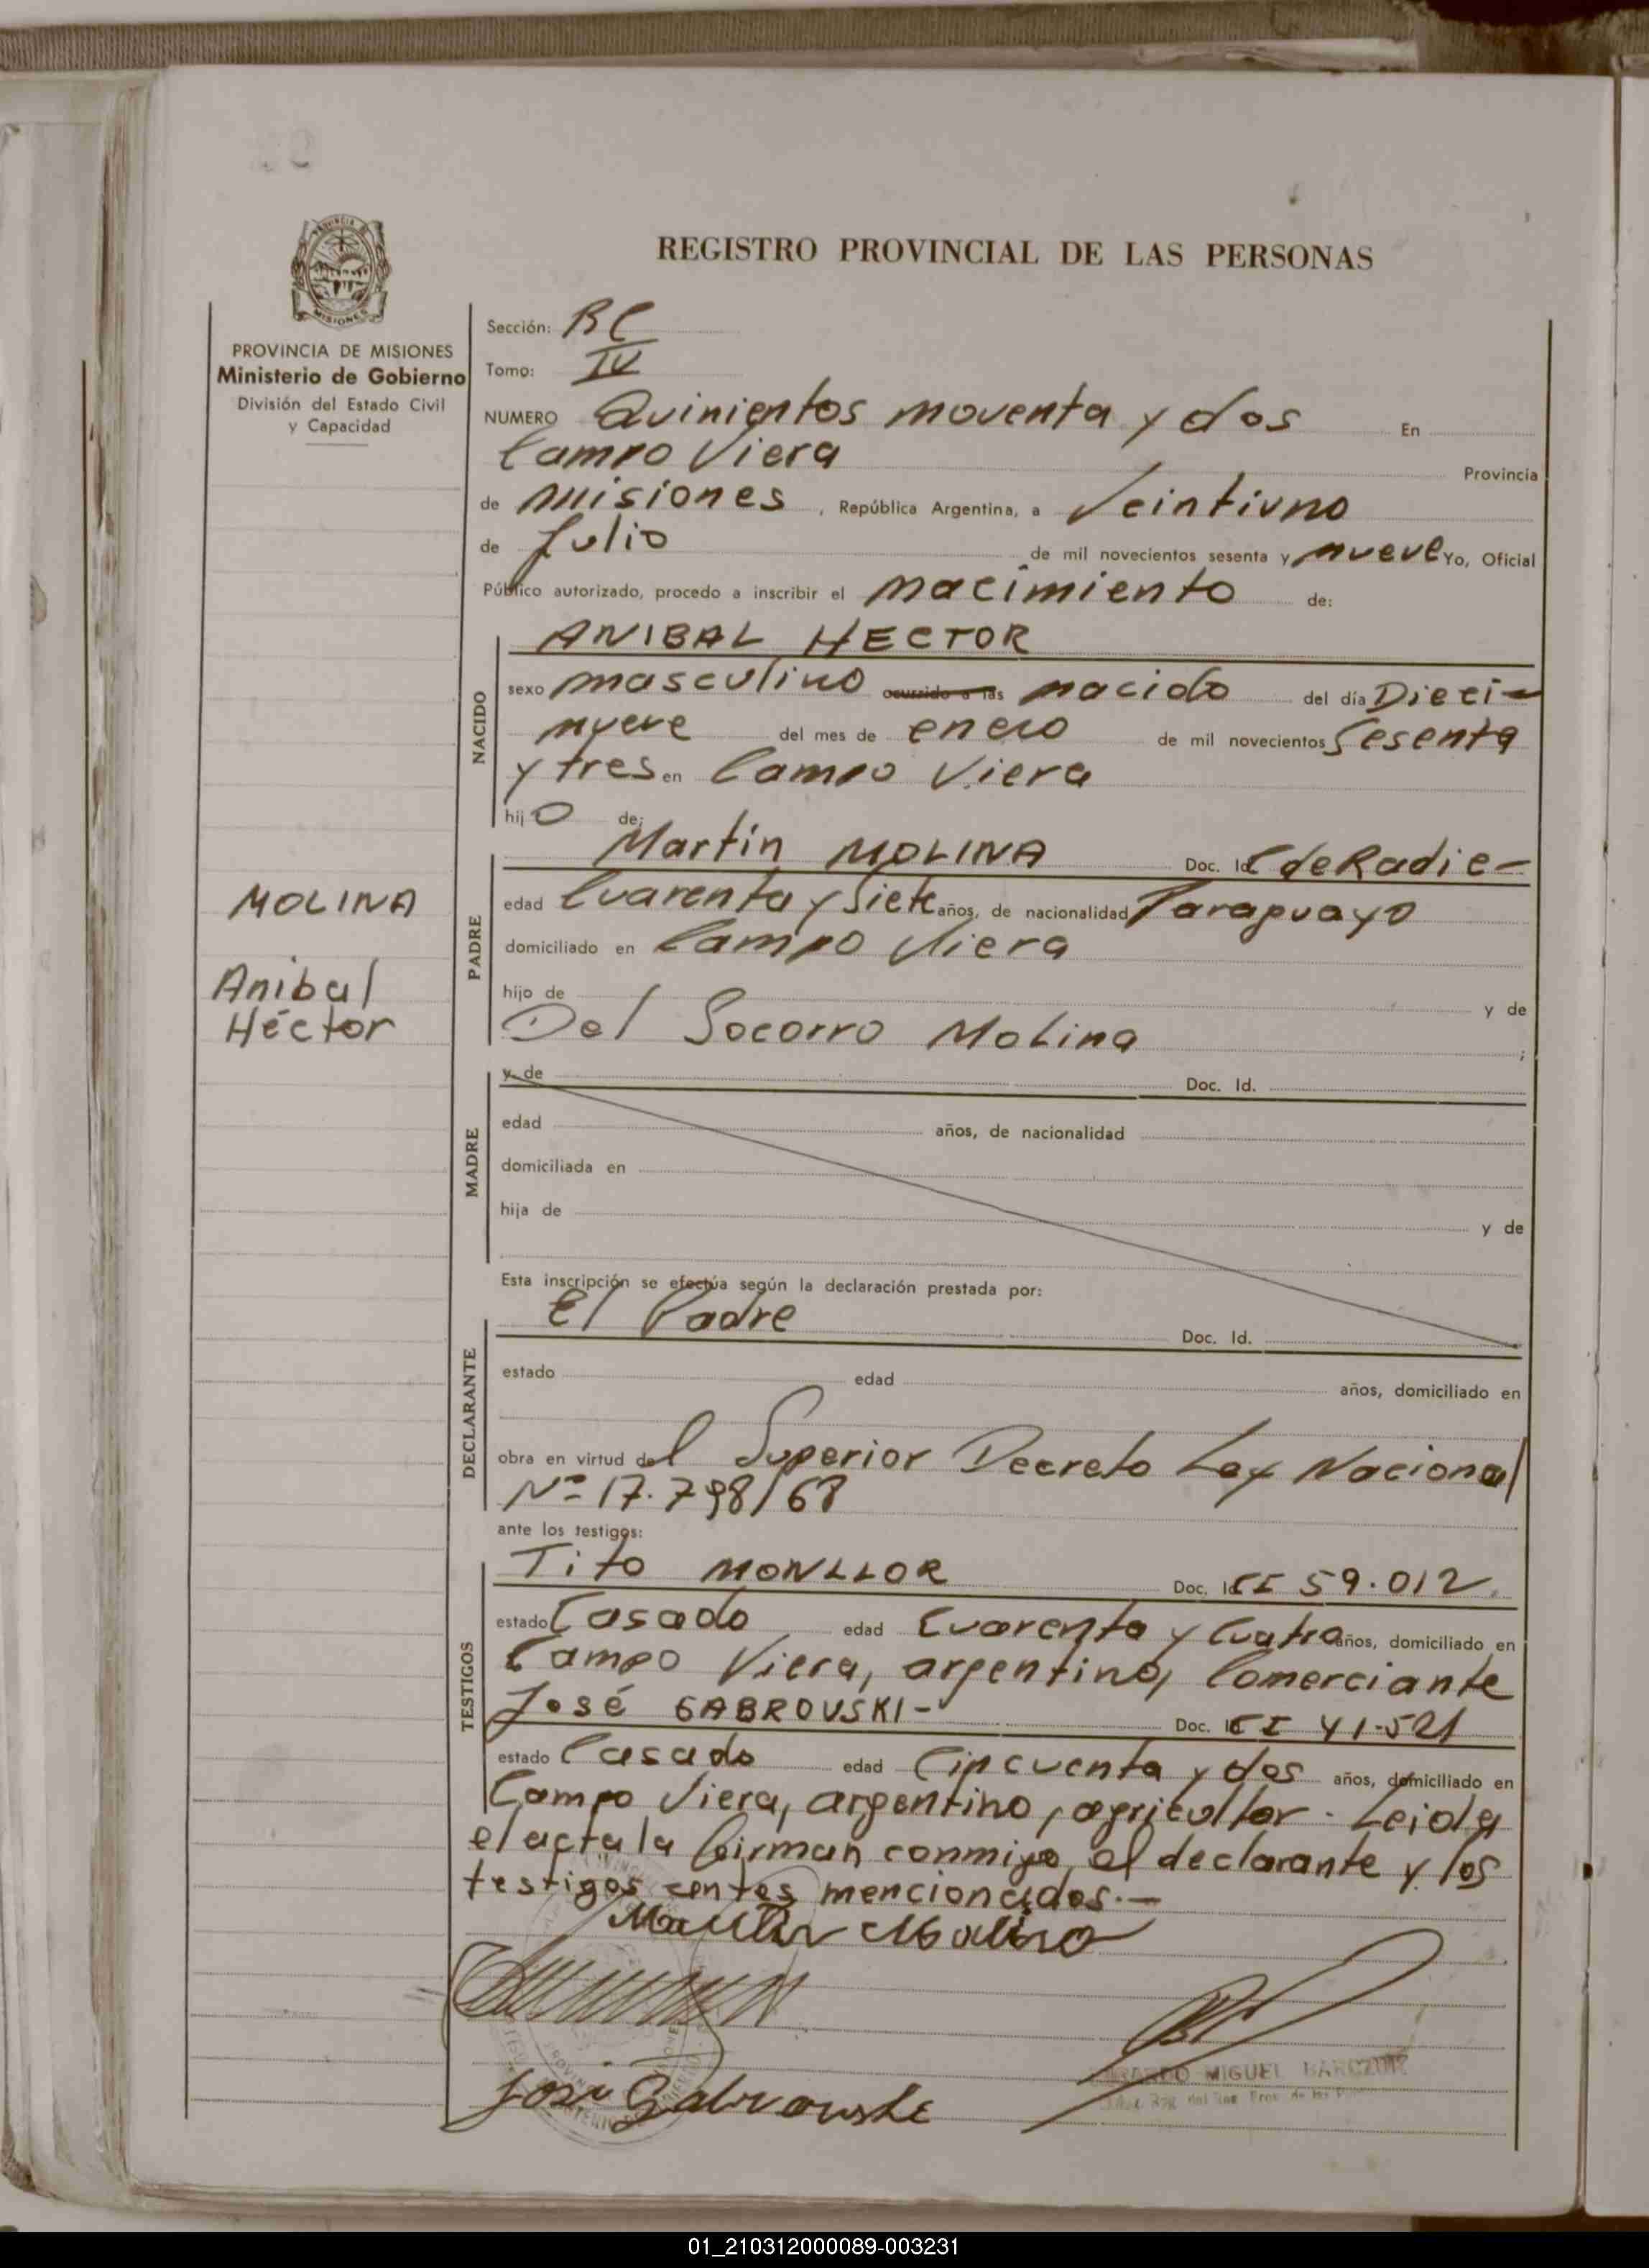 REGISTRO PROVINCIAL DE LAS PERSONAS
PROVINCIA DE MISIONES
Ministerio de Gobierno
División del Estado Civil
y Capacidad
MOLINA
Anibal
Héctor
Sección: RC
Tomo: IV
NUMERO Quinientos noventa y dos En
Campo Viera Provincia
de Misiones , República Argentina, a Veintiuno
de Julio de mil novecientos sesenta y nueve Yo, Oficial
Público autorizado, procedo a inscribir el nacimiento de:
NACIDO
ANIBAL HECTOR
sexo masculino ocurrido a las nacido del día Dieci-
nueve del mes de enero de mil novecientos Sesenta
y tres en Campo Viera
hijo de:
PADRE
Martín MOLINA Doc. Id. C de Radic-
edad Cuarenta y Siete años, de nacionalidad Paraguayo
domiciliado en Campo Viera
hijo de y de
Del Socorro Molina ;
MADRE
y de Doc. Id.
edad años, de nacionalidad
domiciliada en
hija de y de
Esta inscripción se efectúa según la declaración prestada por:
DECLARANTE
El Padre Doc. Id.
estado edad años, domiciliado en
obra en virtud del Superior Decreto Ley Nacional
Nº 17.798/68
ante los testigos:
TESTIGOS
Tito MONLLOR Doc. Id. CI 59.012
estado Casado edad Cuarenta y Cuatro años, domiciliado en
Campo Viera, argentino, Comerciante
José GABROVSKI- Doc. Id. CI 41.521
estado Casado edad Cincuenta y dos años, domiciliado en
Campo Viera, argentino, agricultor. Leida
el acta la firman conmigo, el declarante y los
testigos antes mencionados.-
José Gabrowske
MIGUEL BARCZUK
01_210312000089-003231